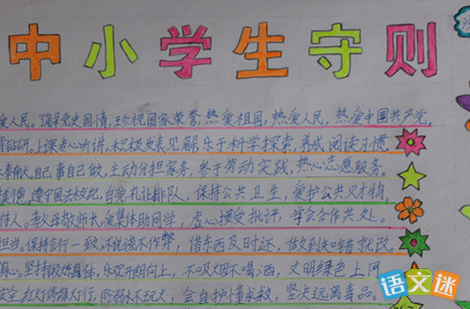 中小学生守则
爱人民。了解党史国情,珍视国家荣誉,热爱祖国,热爱人民,热爱中国共产党。
钻研。上课专心听讲,积极发表见解,乐于科学探索,养成阅读习惯。
奉献。自己事自己做,主动分担家务,参与劳动实践,热心志愿服务。
遵守国法校纪,自觉礼让排队,保持公共卫生,爱护公共财物。
待人。孝父母敬师长,爱集体助同学,虚心接受批评,学会合作共处。
担当。保持言行一致,不说谎不作弊,借东西及时还,做到知错就改。
心。坚持锻炼身体,乐观开朗向上,不吸烟不喝酒,文明绿色上网
安全。红灯停绿灯行,防溺水不玩火,会自护懂求救,坚决远离毒品。
语文迷